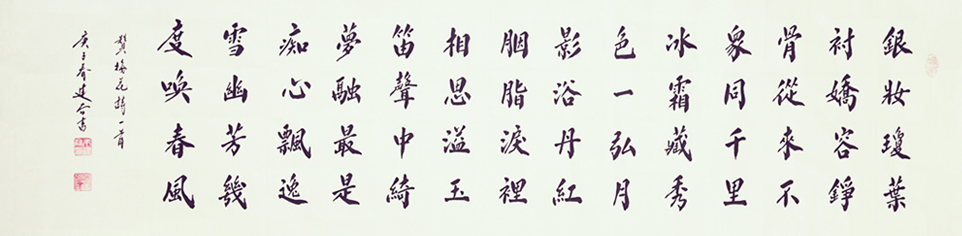 銀妝瓊葉
襯嬌容錚
骨從來不
象同千里
冰霜藏秀
色一弘月
影浴丹紅
胭脂淚裡
相思溢玉
笛聲中綺
夢融最是
痴心飄逸
雪幽芳幾
度喚春風
梅花詩一首
庚子春建合書